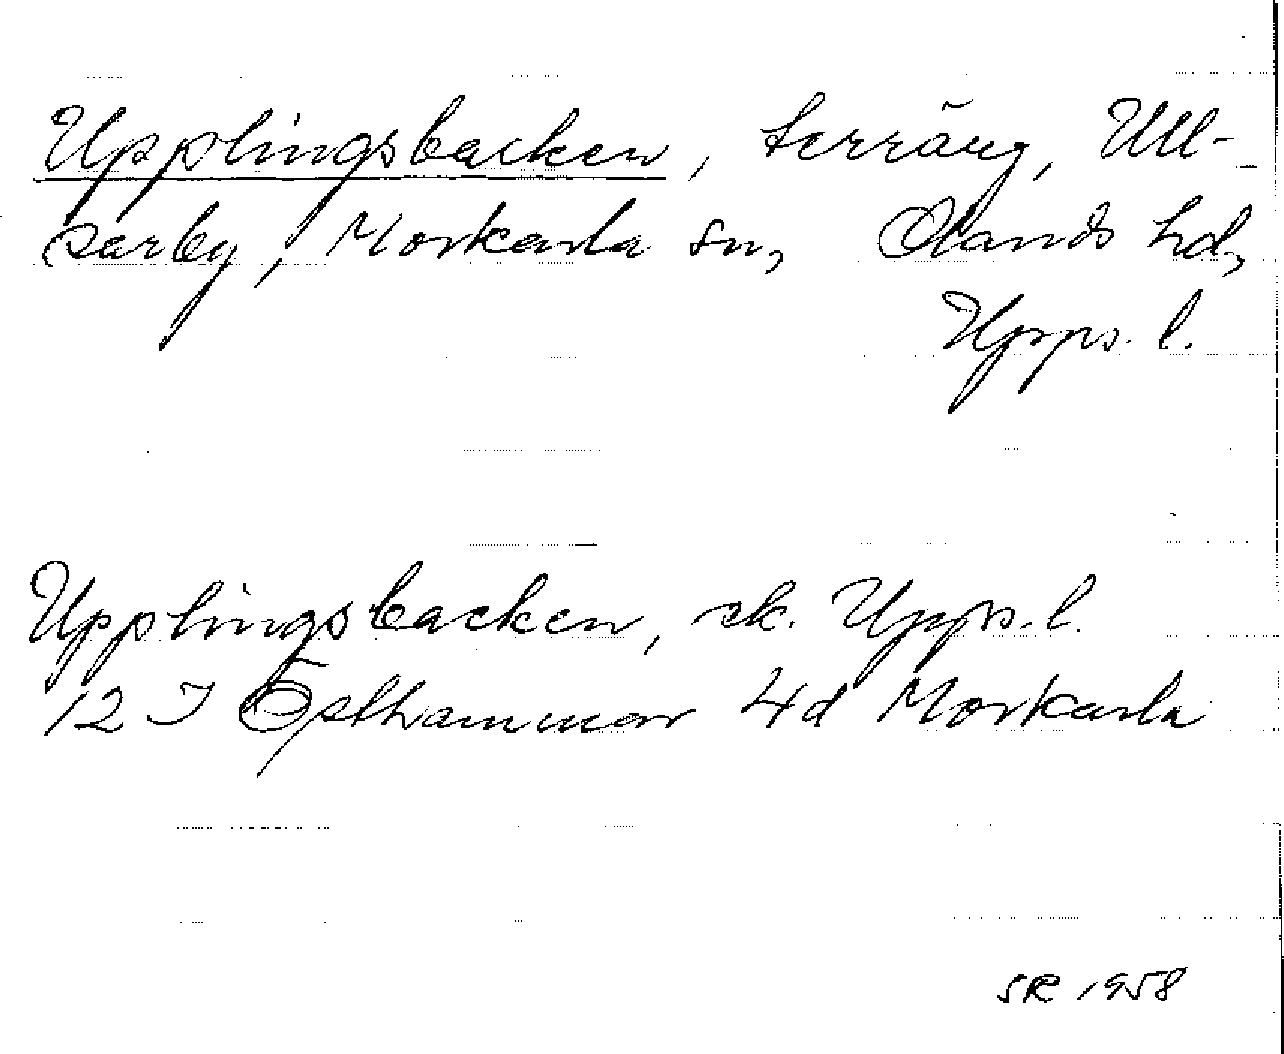 Upplingsbacken, terräng, Ull-
sarby, Morkarla sn, Olands hd,
Upps. l.
Upplingsbacken, sk. Upps. l.
12 I Östhammar 4d Morkarla
SR 1958